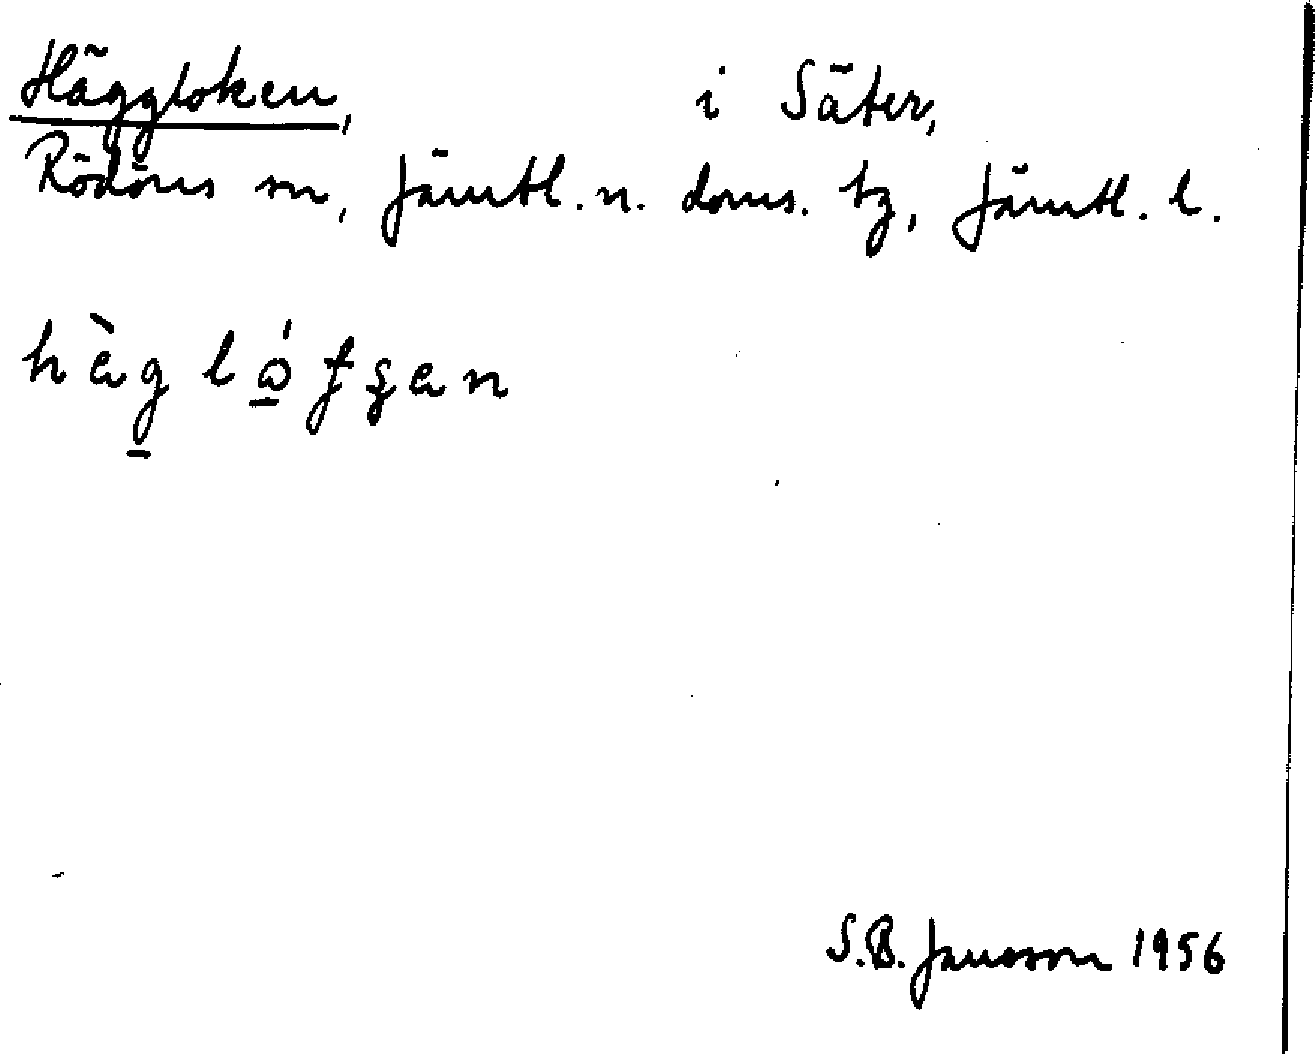 Häggloken, i Säter,
Rödöns sn, Jämtl. n. doms. tg, Jämtl. l.
S.B. Jansson 1956